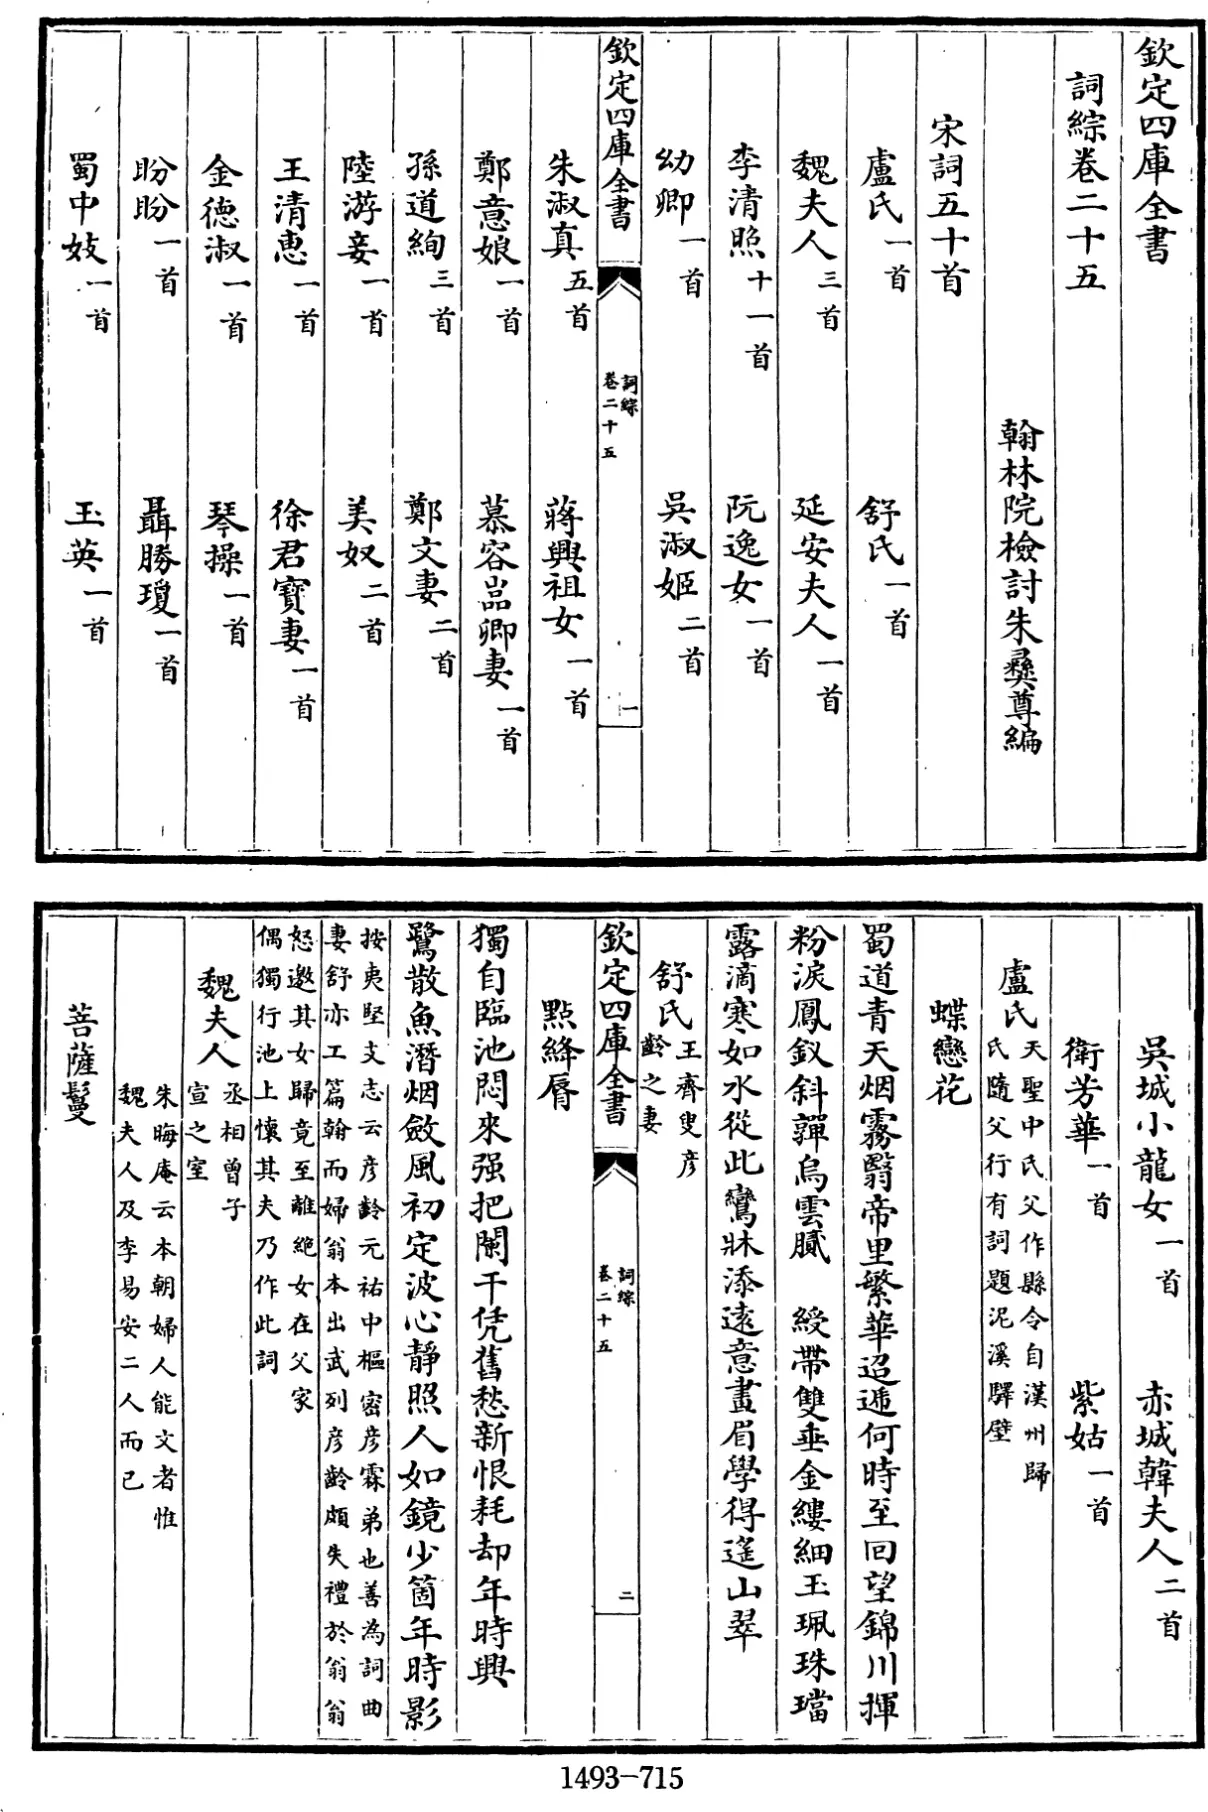 欽定四庫全書
詞綜卷二十五
翰林院檢討朱彝尊編
宋詞五十首
盧氏一首 舒氏一首
魏夫人三首 延安夫人一首
李清照十一首 阮逸女一首
幼卿一首 吳淑姬二首
欽定四庫全書
詞綜
卷二十五
一
朱淑真五首 蔣興祖女一首
鄭意娘一首 慕容嵓卿妻一首
孫道絢三首 鄭文妻二首
陸游妾一首 美奴二首
王清惠一首 徐君寶妻一首
金德淑一首 琴操一首
盼盼一首 聶勝瓊一首
蜀中妓一首 玉英一首
吳城小龍女一首 赤城韓夫人二首
衛芳華一首 紫姑一首
盧氏天聖中氏父作縣令自漢州歸
氏隨父行有詞題泥溪驛壁
蝶戀花
蜀道青天烟霧翳帝里繁華迢遞何時至回望錦川揮
粉淚鳳釵斜嚲烏雲膩 綬帶雙垂金縷細玉珮珠璫
露滴寒如水從此鸞牀添遠意畫眉學得遙山翠
舒氏王齊叟彦
齡之妻
欽定四庫全書
詞綜
卷二十五
二
點絳脣
獨自臨池悶來强把闌干凭舊愁新恨耗却年時興
鷺散魚潛烟斂風初定波心靜照人如鏡少箇年時影
按夷堅支志云彦齡元祐中樞密彦霖弟也善為詞曲
妻舒亦工篇翰而婦翁本出武列彦齡頗失禮於翁翁
怒邀其女歸竟至離絶女在父家
偶獨行池上懷其夫乃作此詞
魏夫人丞相曾子
宣之室
朱晦庵云本朝婦人能文者惟
魏夫人及李易安二人而已
菩薩鬘
1493-715